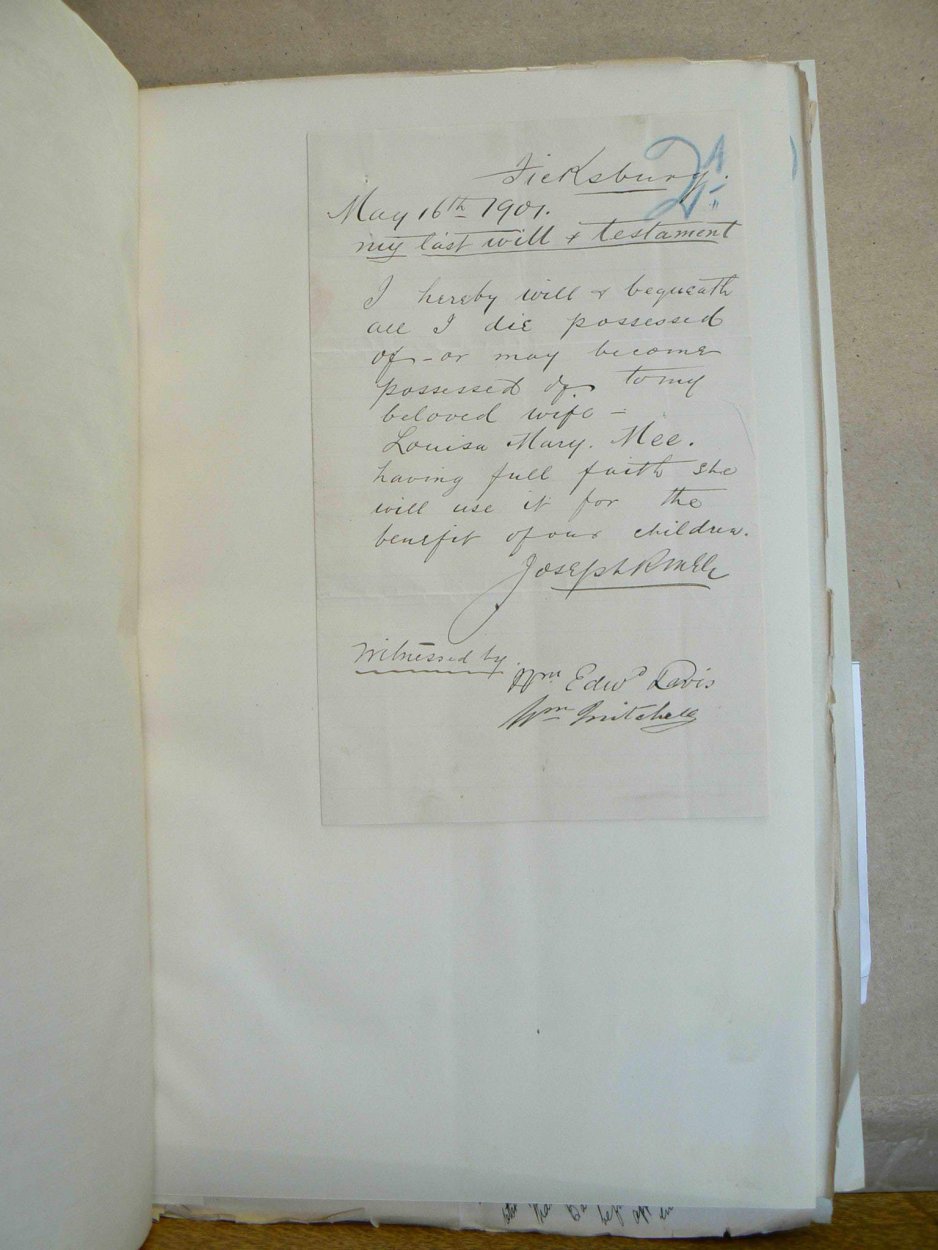 Ficksburg.
May 16th 1901.
my last will & testament
I hereby will & bequeath
all I die possessed
of - or may become
possessed of, to my
beloved wife -
Louisa Mary. Mee.
having full faith she
will use it for the
benefit of our children.
Joseph R Mee
Witnessed by
Wm Edwd Davis
Wm Mitchell